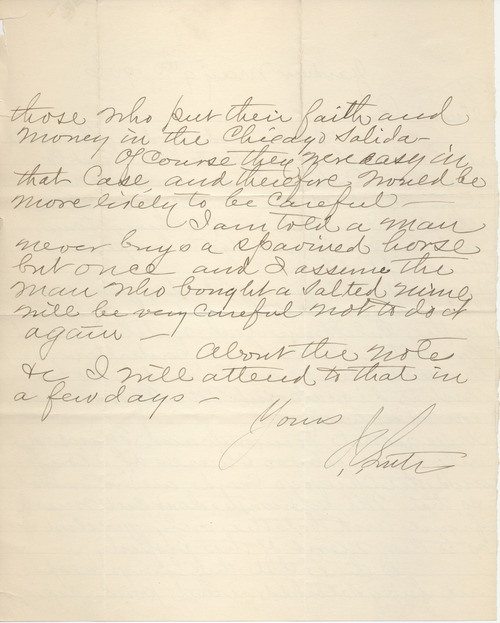 those who put their faith and
money in the Chicago Salida –
Of course they were easy in
that case and therefore would be
more likely to be careful –
I am told a man
never buys a spavined horse
but once and I assume the
man who bought a salted mine
will be very careful not to do it
again –
About the note
&c I will attend to that in
a few days –
Yours